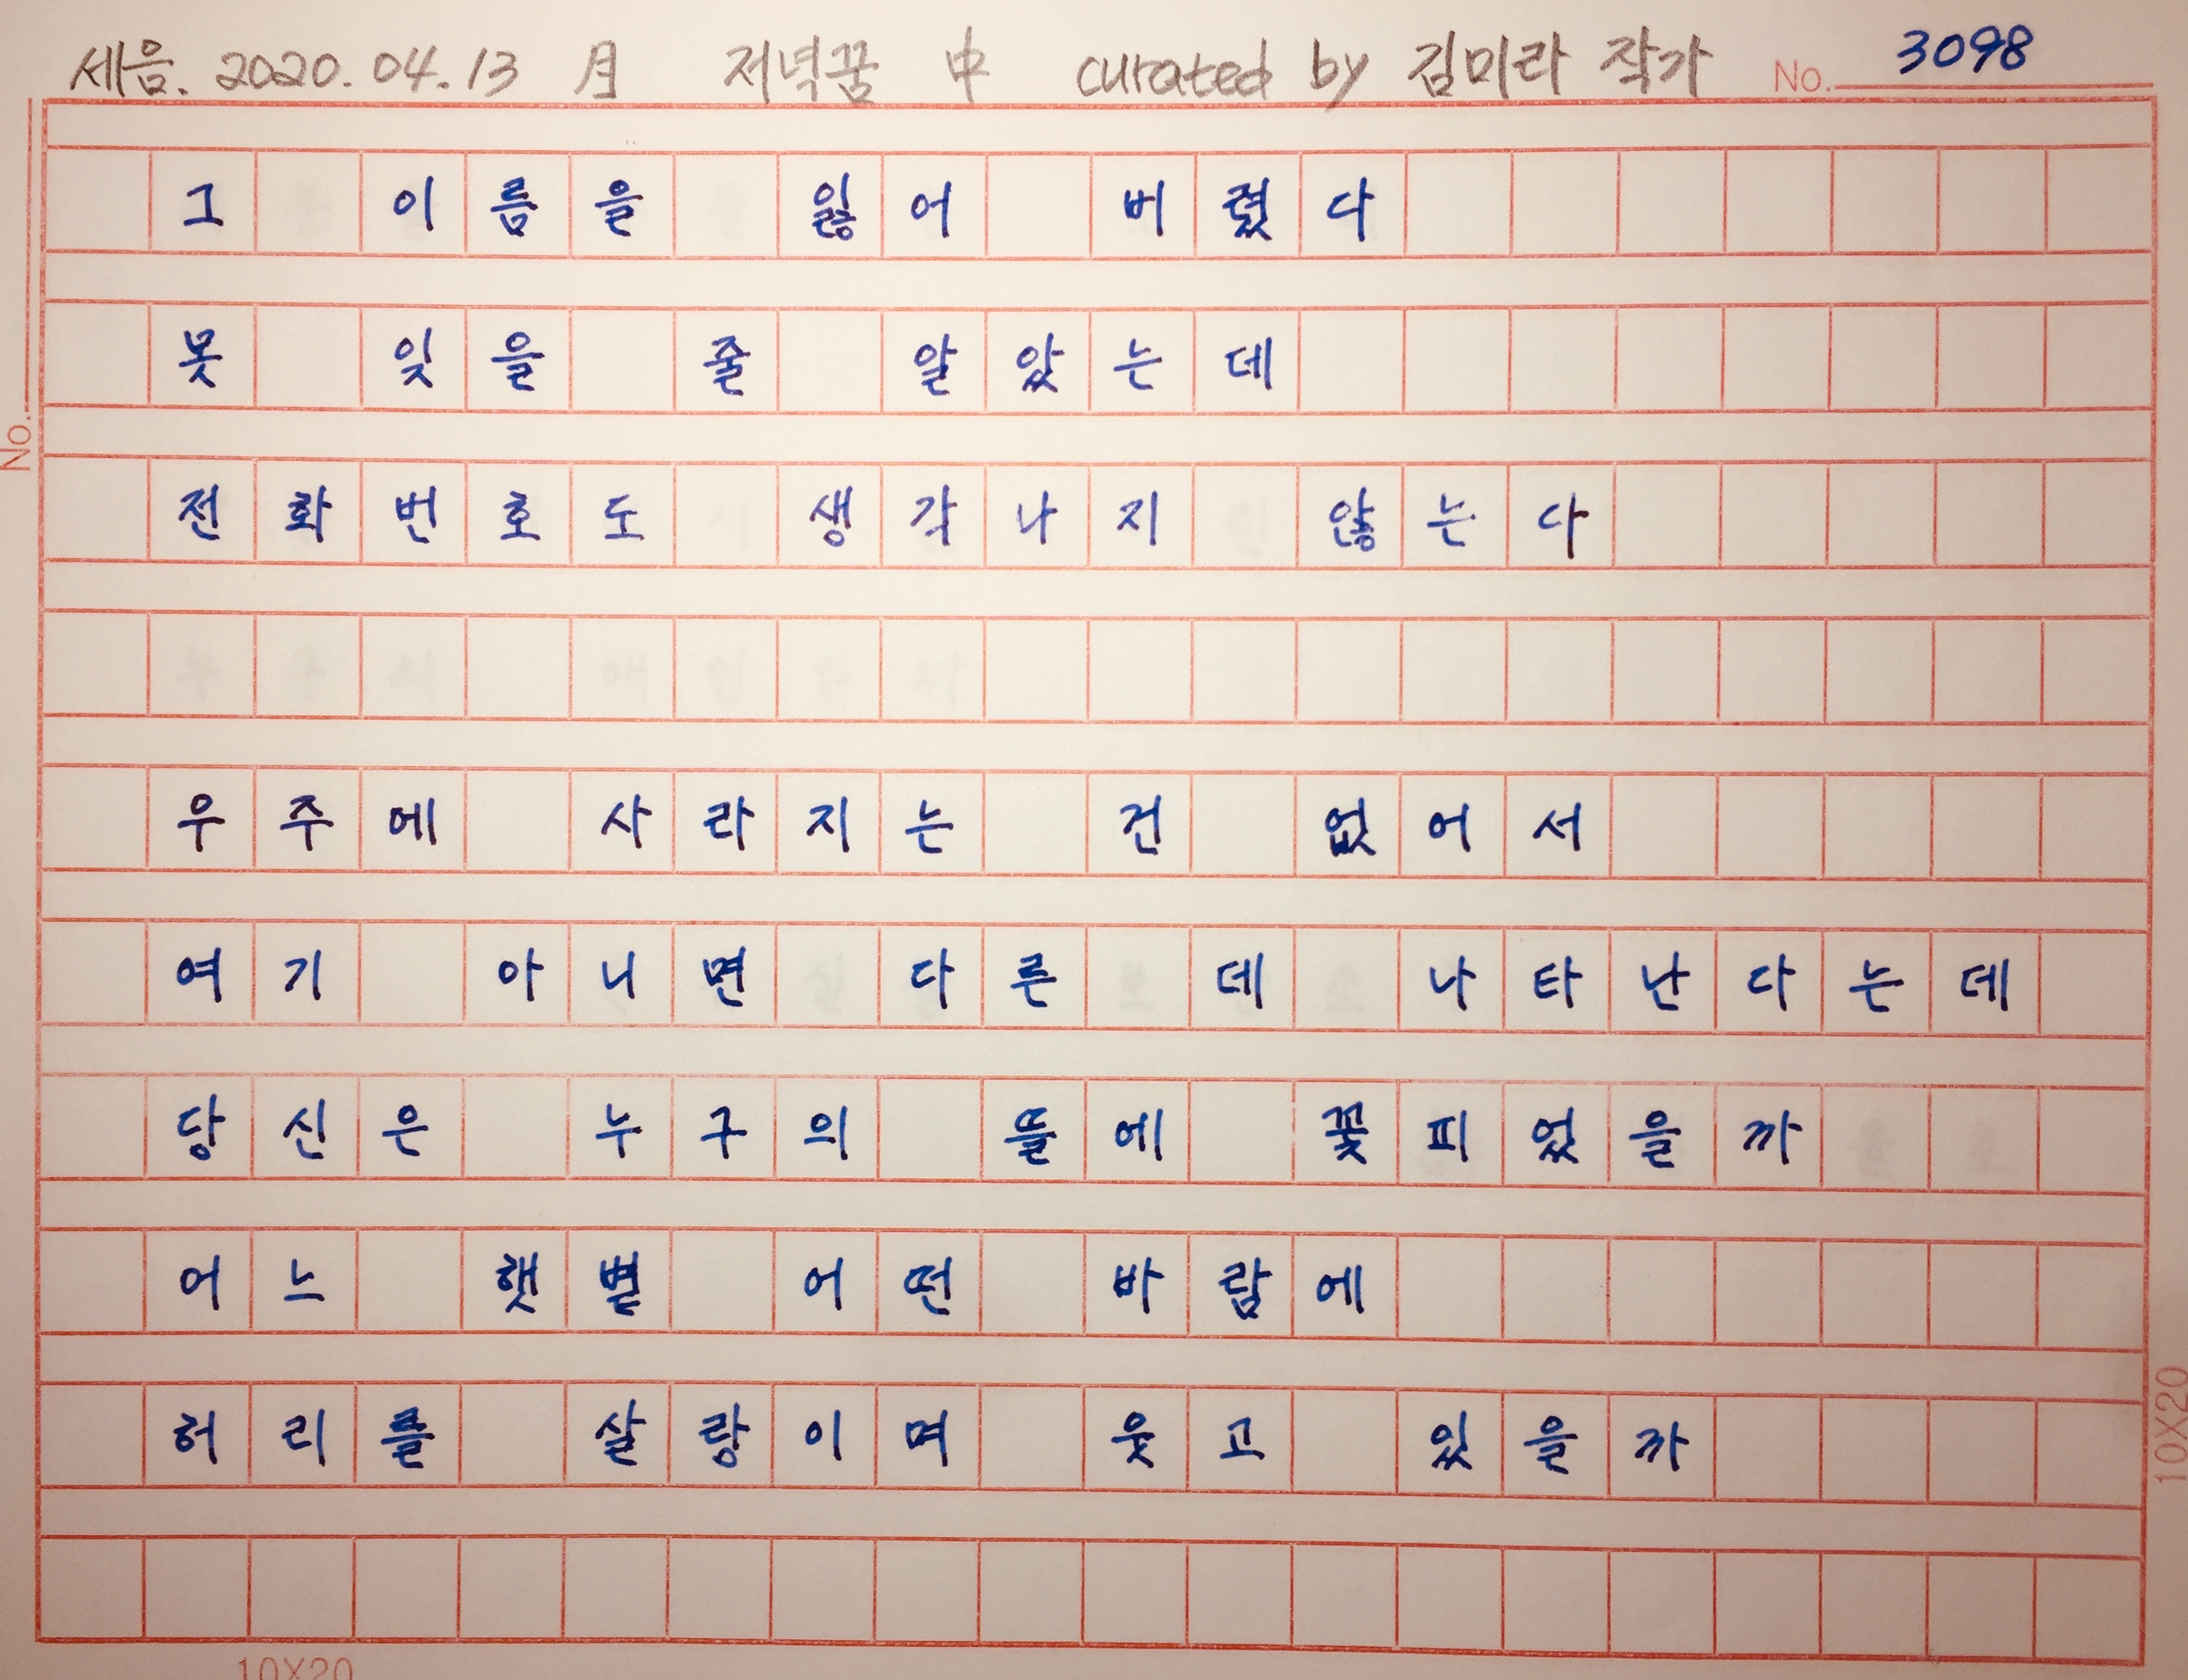 세음. 2020. 04. 13 月 저녁꿈 中 curated by 김미라 작가 No. 3098
그 이름을 잃어 버렸다
못 잊을 줄 알았는데
전화번호도 생각나지 않는다
우주에 사라지는 건 없어서
여기 아니면 다른 데 나타난다는데
당신은 누구의 뜰에 꽃피었을까
어느 햇볕 어떤 바람에
허리를 살랑이며 웃고 있을까
No.
10X20
10X20